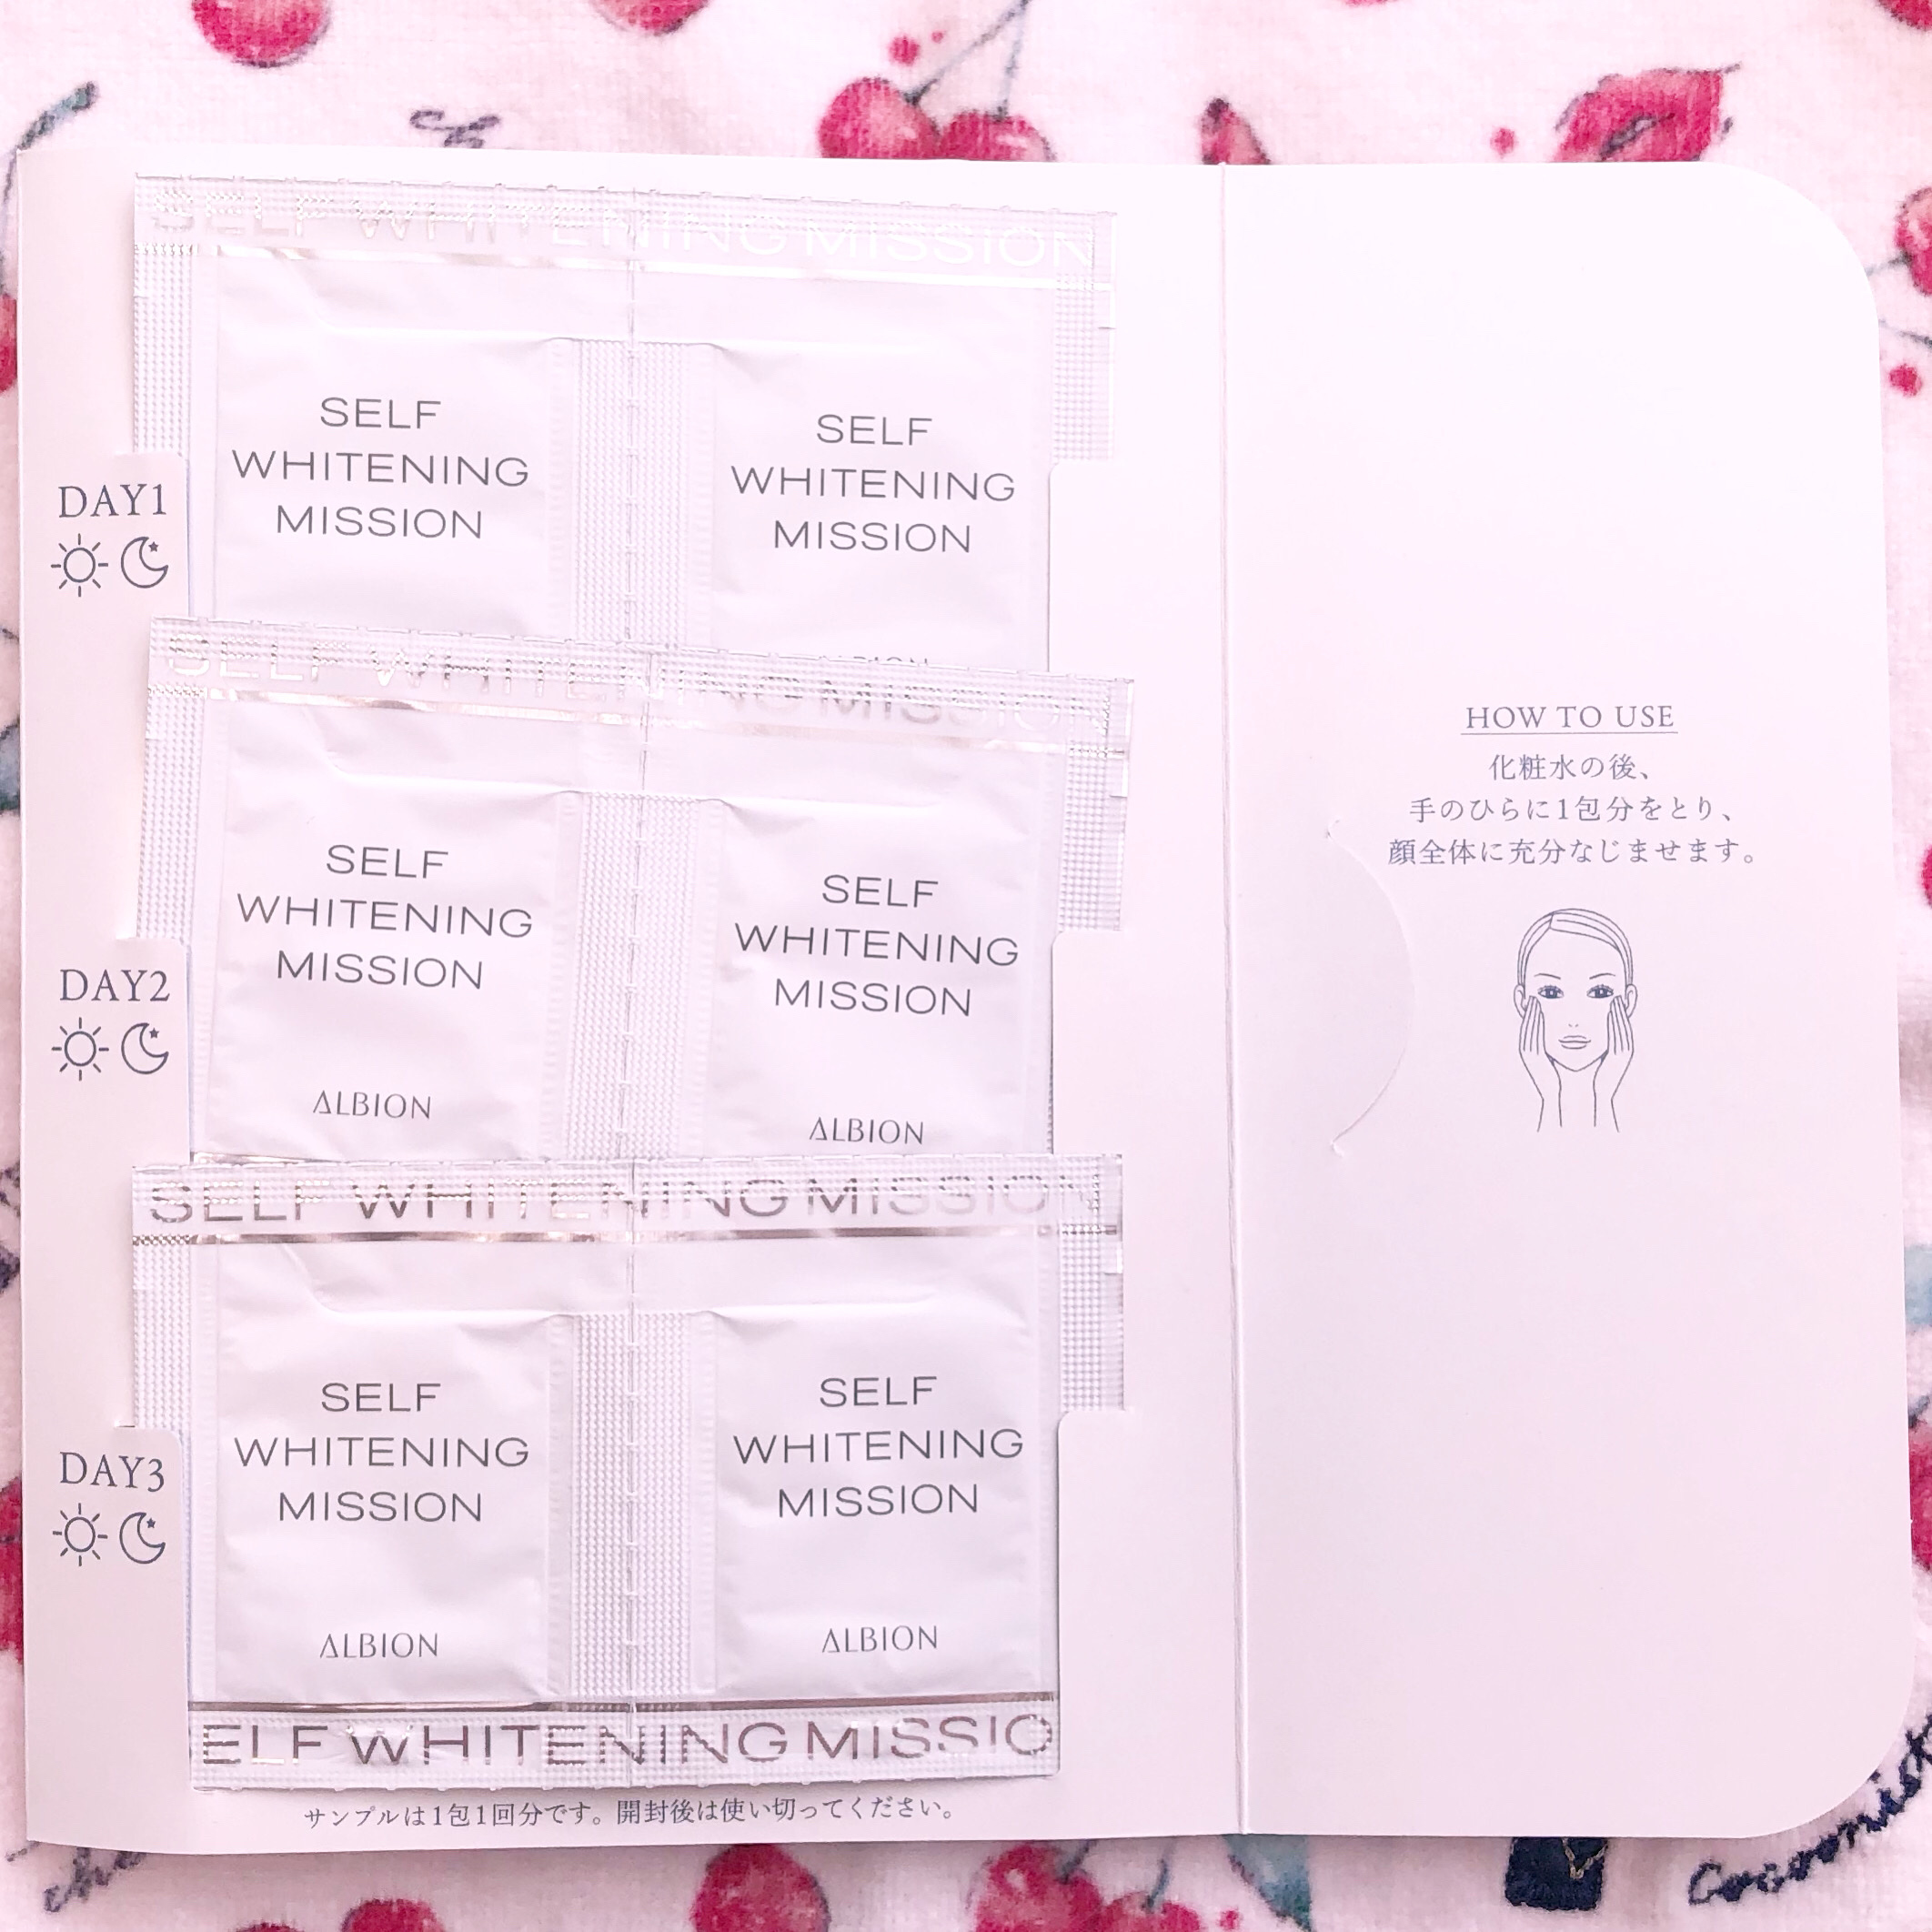 SELF WHITENING MISSION
SELF
WHITENING
MISSION
SELF
WHITENING
MISSION
DAY1
SELF WHITENING MISSION
SELF
WHITENING
MISSION
ALBION
SELF
WHITENING
MISSION
ALBION
DAY2
SELF WHITENING MISSION
SELF
WHITENING
MISSION
ALBION
SELF
WHITENING
MISSION
ALBION
DAY3
ELF WHITENING MISSIO
サンプルは1包1回分です。開封後は使い切ってください。
HOW TO USE
化粧水の後、
手のひらに1包分をとり、
顔全体に充分なじませます。
Cocoonist